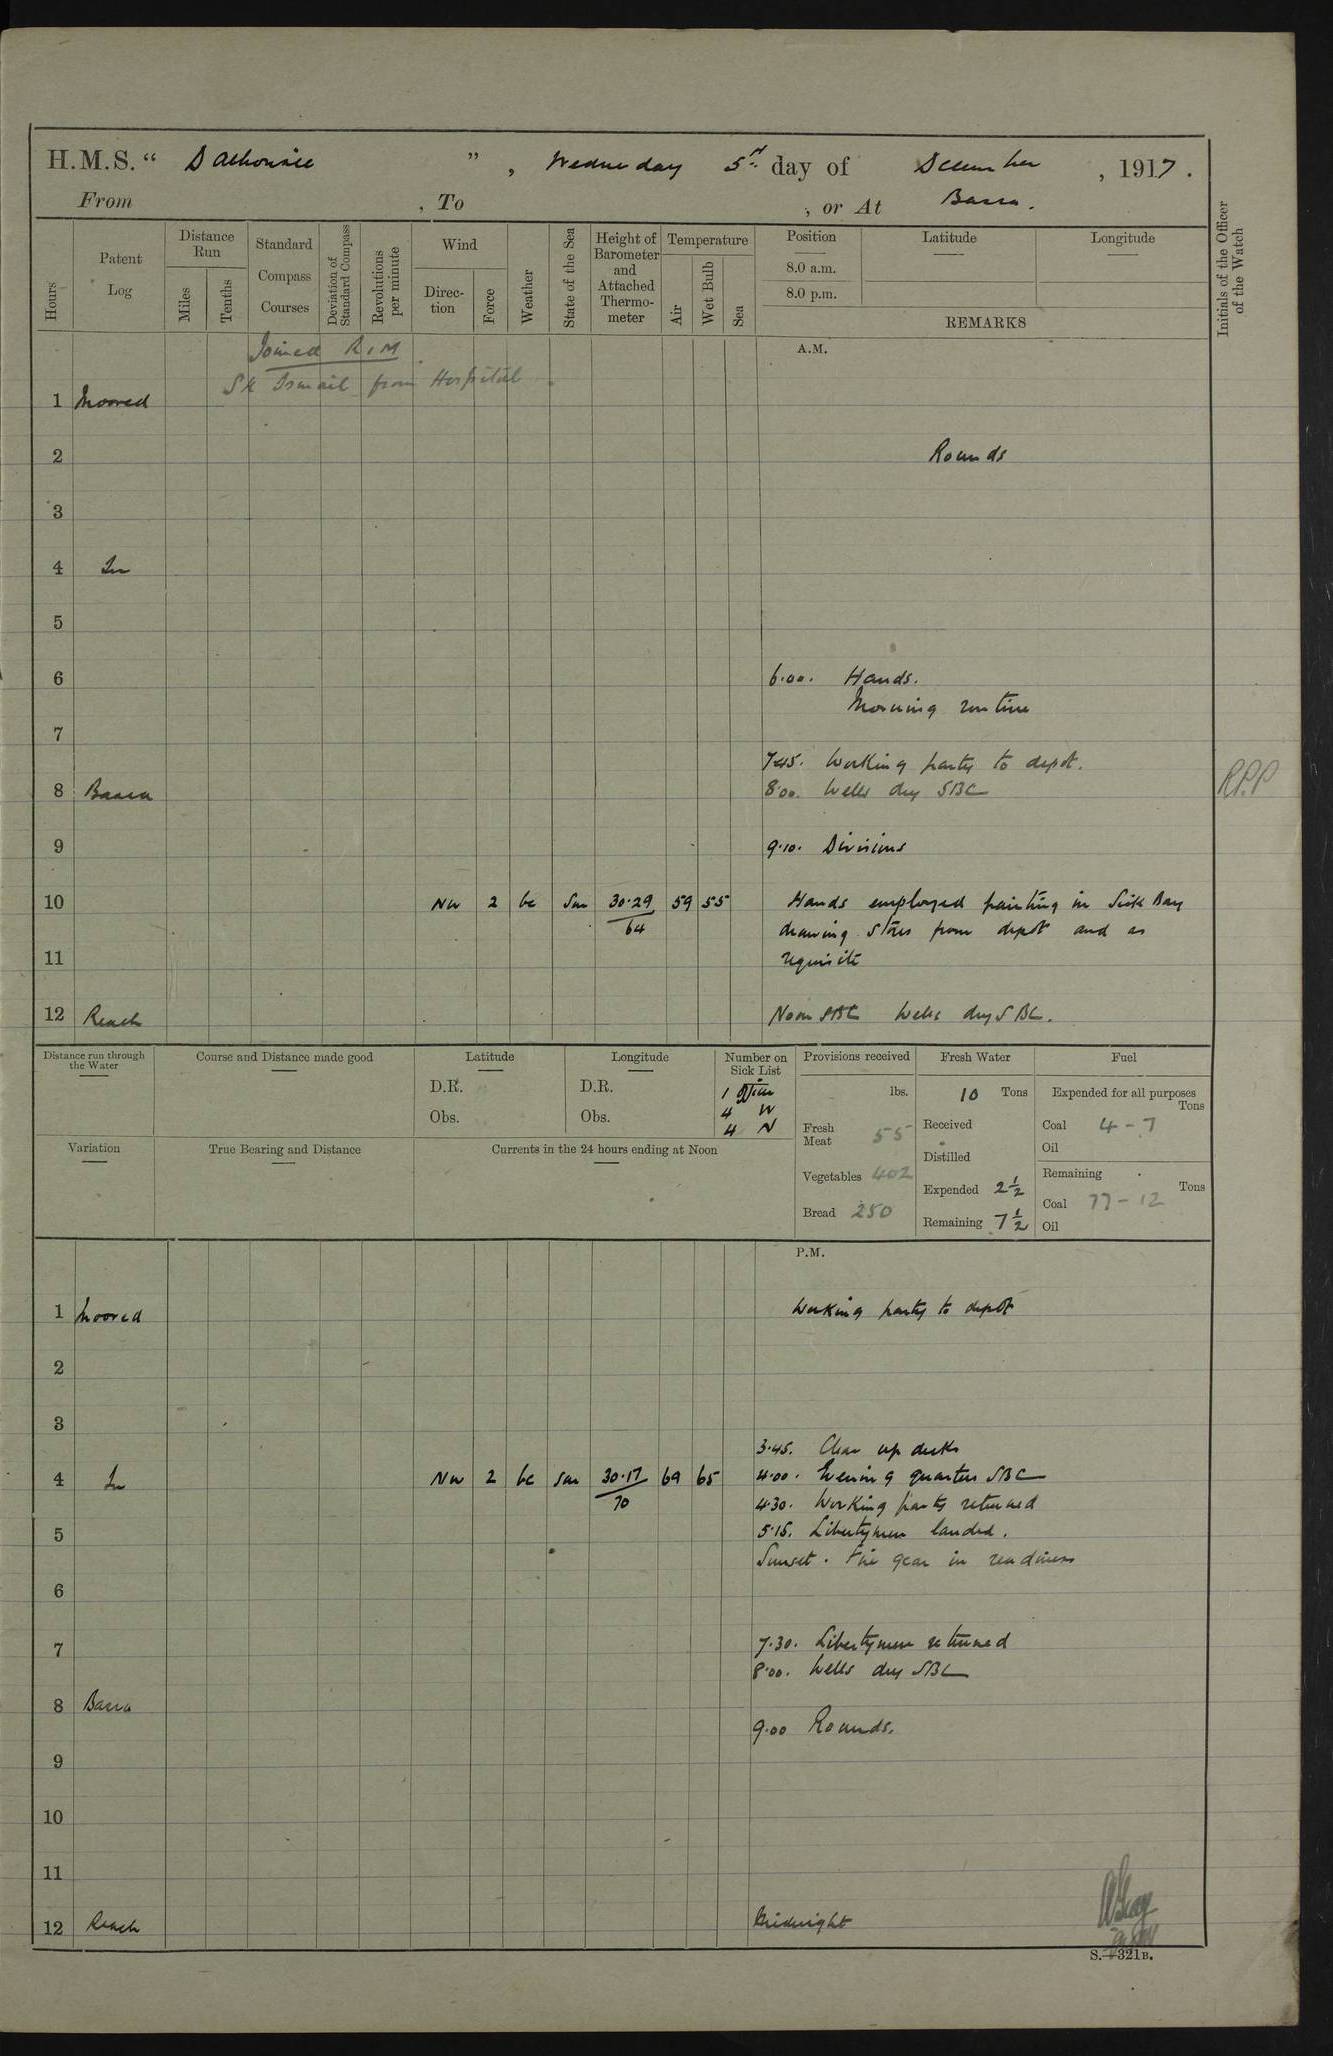 H.M.S. " Dalhousie ", Wednesday 5th day of December, 1917.
From , To , or At Basra.
Hours
Patent Log
Distance Run
Miles
Tenths
Standard Compass Courses
Deviation of Standard Compass
Revolutions per minute
Wind
Direc-tion
Force
Weather
State of the Sea
Height of Barometer and Attached Thermo-meter
Temperature
Air
Wet Bulb
Sea
Position
8.0 a.m.
8.0 p.m.
Latitude
Longitude
REMARKS
Initials of the Officer of the Watch
Joined R.I.M
Sk Ismail from Hospital
A.M.
1 Moored
2 Rounds
3
4 In
5
6 6.00. Hands.
Morning routine
7
7.45. Working party to depot.
8 Basra 8.00. Wells dry SBC R.P.P
9 9.10. Divisions
10 NW 2 bc Sm 30.29 59 55 Hands employed painting in Sick Bay
64 drawing stores from depot and as
11 requisite
12 Reach Noon SBC Wells dry SBC.
Distance run through the Water
Course and Distance made good
Latitude
D.R.
Obs.
Longitude
D.R.
Obs.
Number on Sick List
1 Officer
4 W
4 N
Provisions received
lbs.
Fresh Meat 55
Vegetables 402
Bread 250
Fresh Water
10 Tons
Received
Distilled
Expended 2 1/2
Remaining 7 1/2
Fuel
Expended for all purposes
Tons
Coal 4-7
Oil
Remaining
Tons
Coal 77-12
Oil
Variation
True Bearing and Distance
Currents in the 24 hours ending at Noon
P.M.
1 Moored Working party to depot
2
3
3.45. Clear up decks
4 In NW 2 bc Sm 30.17 69 65 4.00. Evening quarters SBC
70 4.30. Working party returned
5 5.15. Libertymen landed.
Sunset. Fire gear in readiness
6
7 7.30. Libertymen returned
8.00. Wells dry SBC
8 Basra
9.00 Rounds.
9
10
11
12 Reach Midnight
S.-321B.